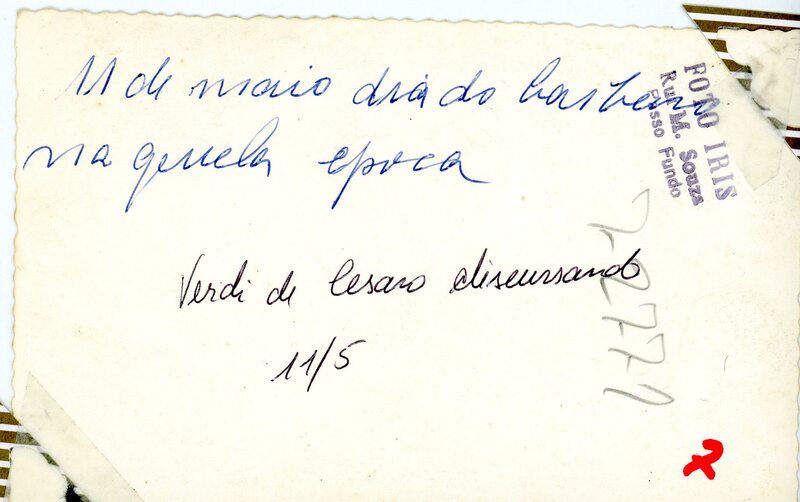 11 de maio dia do barbeiro
na quela epoca
Verdi de Cesaro discursando
11/5
FOTO IRIS
Rua M. Souza
Passo Fundo
2771